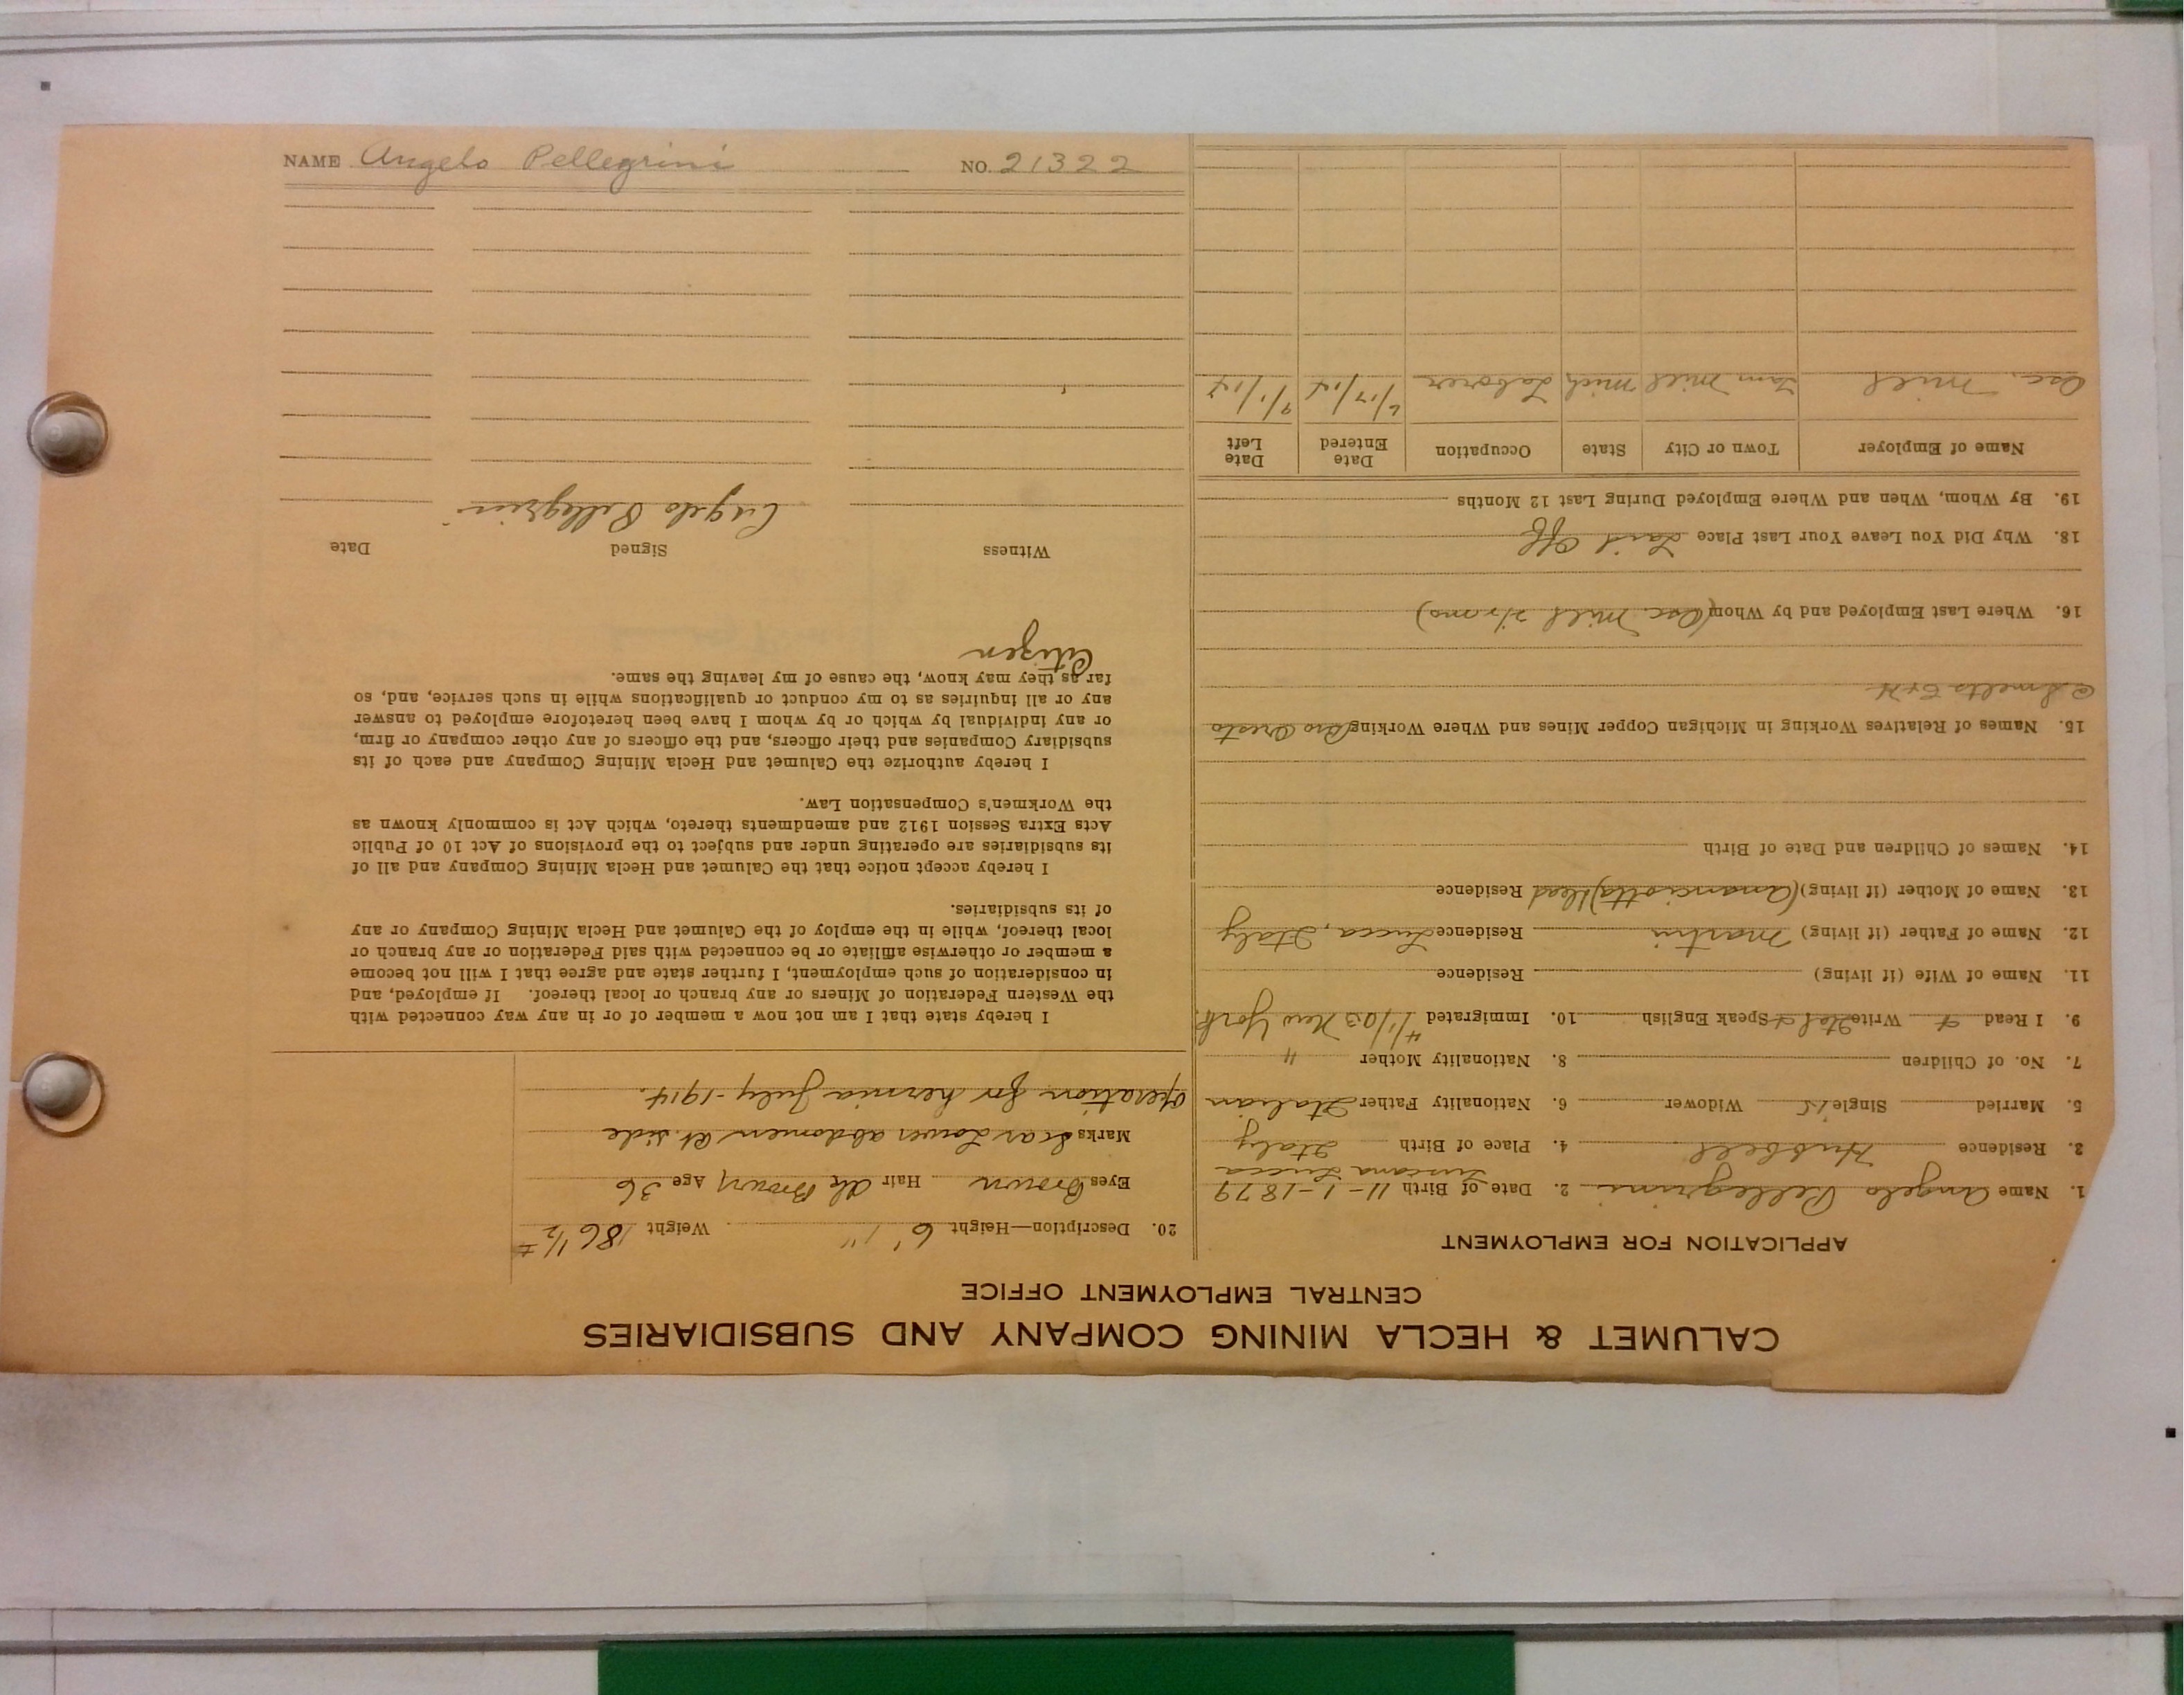 NAME Angelo Pellegrini NO. 21322
CALUMET & HECLA MINING COMPANY AND SUBSIDIARIES
CENTRAL EMPLOYMENT OFFICE
APPLICATION FOR EMPLOYMENT
1. Name Angelo Pellegrini 2. Date of Birth 11-1-1879
Tuscana Lucca
3. Residence Hubbell 4. Place of Birth Italy
5. Married Single is Widower 6. Nationality Father Italian
7. No. of Children 8. Nationality Mother "
9. I Read Write Ital Speak English 10. Immigrated 4/1/03 New York
11. Name of Wife (if living) Residence
12. Name of Father (if living) Martin Residence Lucca, Italy
13. Name of Mother (if living) (Dead Residence
14. Names of Children and Date of Birth
15. Names of Relatives Working in Michigan Copper Mines and Where Working Bro Oresto
Smelts
16. Where Last Employed and by Whom (Osc. Mill
18. Why Did You Leave Your Last Place Laid Off
19. By Whom, When and Where Employed During Last 12 Months
Name of Employer Town or City State Occupation Date Entered Date Left
Osc. Mill Tam Mill Mich Laborer
20. Description—Height 6' 1" Weight 186 1/2 #
Eyes Brown Hair Dk Brown Age 36
Marks Scar Lower abdomen Rt. side
operation for hernia July-1914.
I hereby state that I am not now a member of or in any way connected with
the Western Federation of Miners or any branch or local thereof. If employed, and
in consideration of such employment, I further state and agree that I will not become
a member or otherwise affiliate or be connected with said Federation or any branch or
local thereof, while in the employ of the Calumet and Hecla Mining Company or any
of its subsidiaries.
I hereby accept notice that the Calumet and Hecla Mining Company and all of
its subsidiaries are operating under and subject to the provisions of Act 10 of Public
Acts Extra Session 1912 and amendments thereto, which Act is commonly known as
the Workmen's Compensation Law.
I hereby authorize the Calumet and Hecla Mining Company and each of its
subsidiary Companies and their officers, and the officers of any other company or firm,
or any individual by which or by whom I have been heretofore employed to answer
any or all inquiries as to my conduct or qualifications while in such service, and, so
far as they may know, the cause of my leaving the same.
Citizen
Witness Signed Date
Angelo Pellegrini